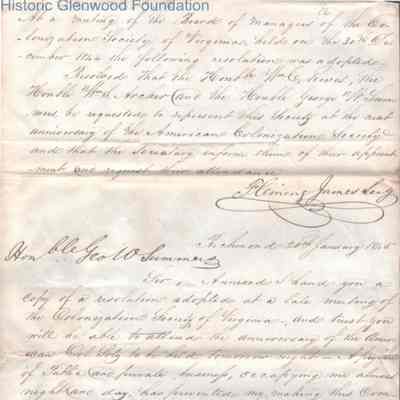 Historic Glenwood Foundation
At a meeting of the Board of Managers of the Co-
lonization Society of Virginia, held on the 30th De
cember 1844 the following resolution was adopted.
Resolved that the Honble Wm C. Rives, the
Honble Wm S. Archer, and the Honble George W. Summers
be requested to represent this Society at the next
anniversary of the American Colonization Society
and that the Secretary inform them of their appoint
ment and request their attendance
Fleming James Secy
Richmond 20th January 1845
Honble Geo W Summers
Sir Annexed I hand you a
copy of a resolution adopted at a late meeting of
the Colonization Society of Virginia, and trust you
will be able to attend the anniversary of the Amer
ican Col Socty to be held tomorrow night A press
of Public and private business, occupying me almost
night and day, has prevented my making this Com